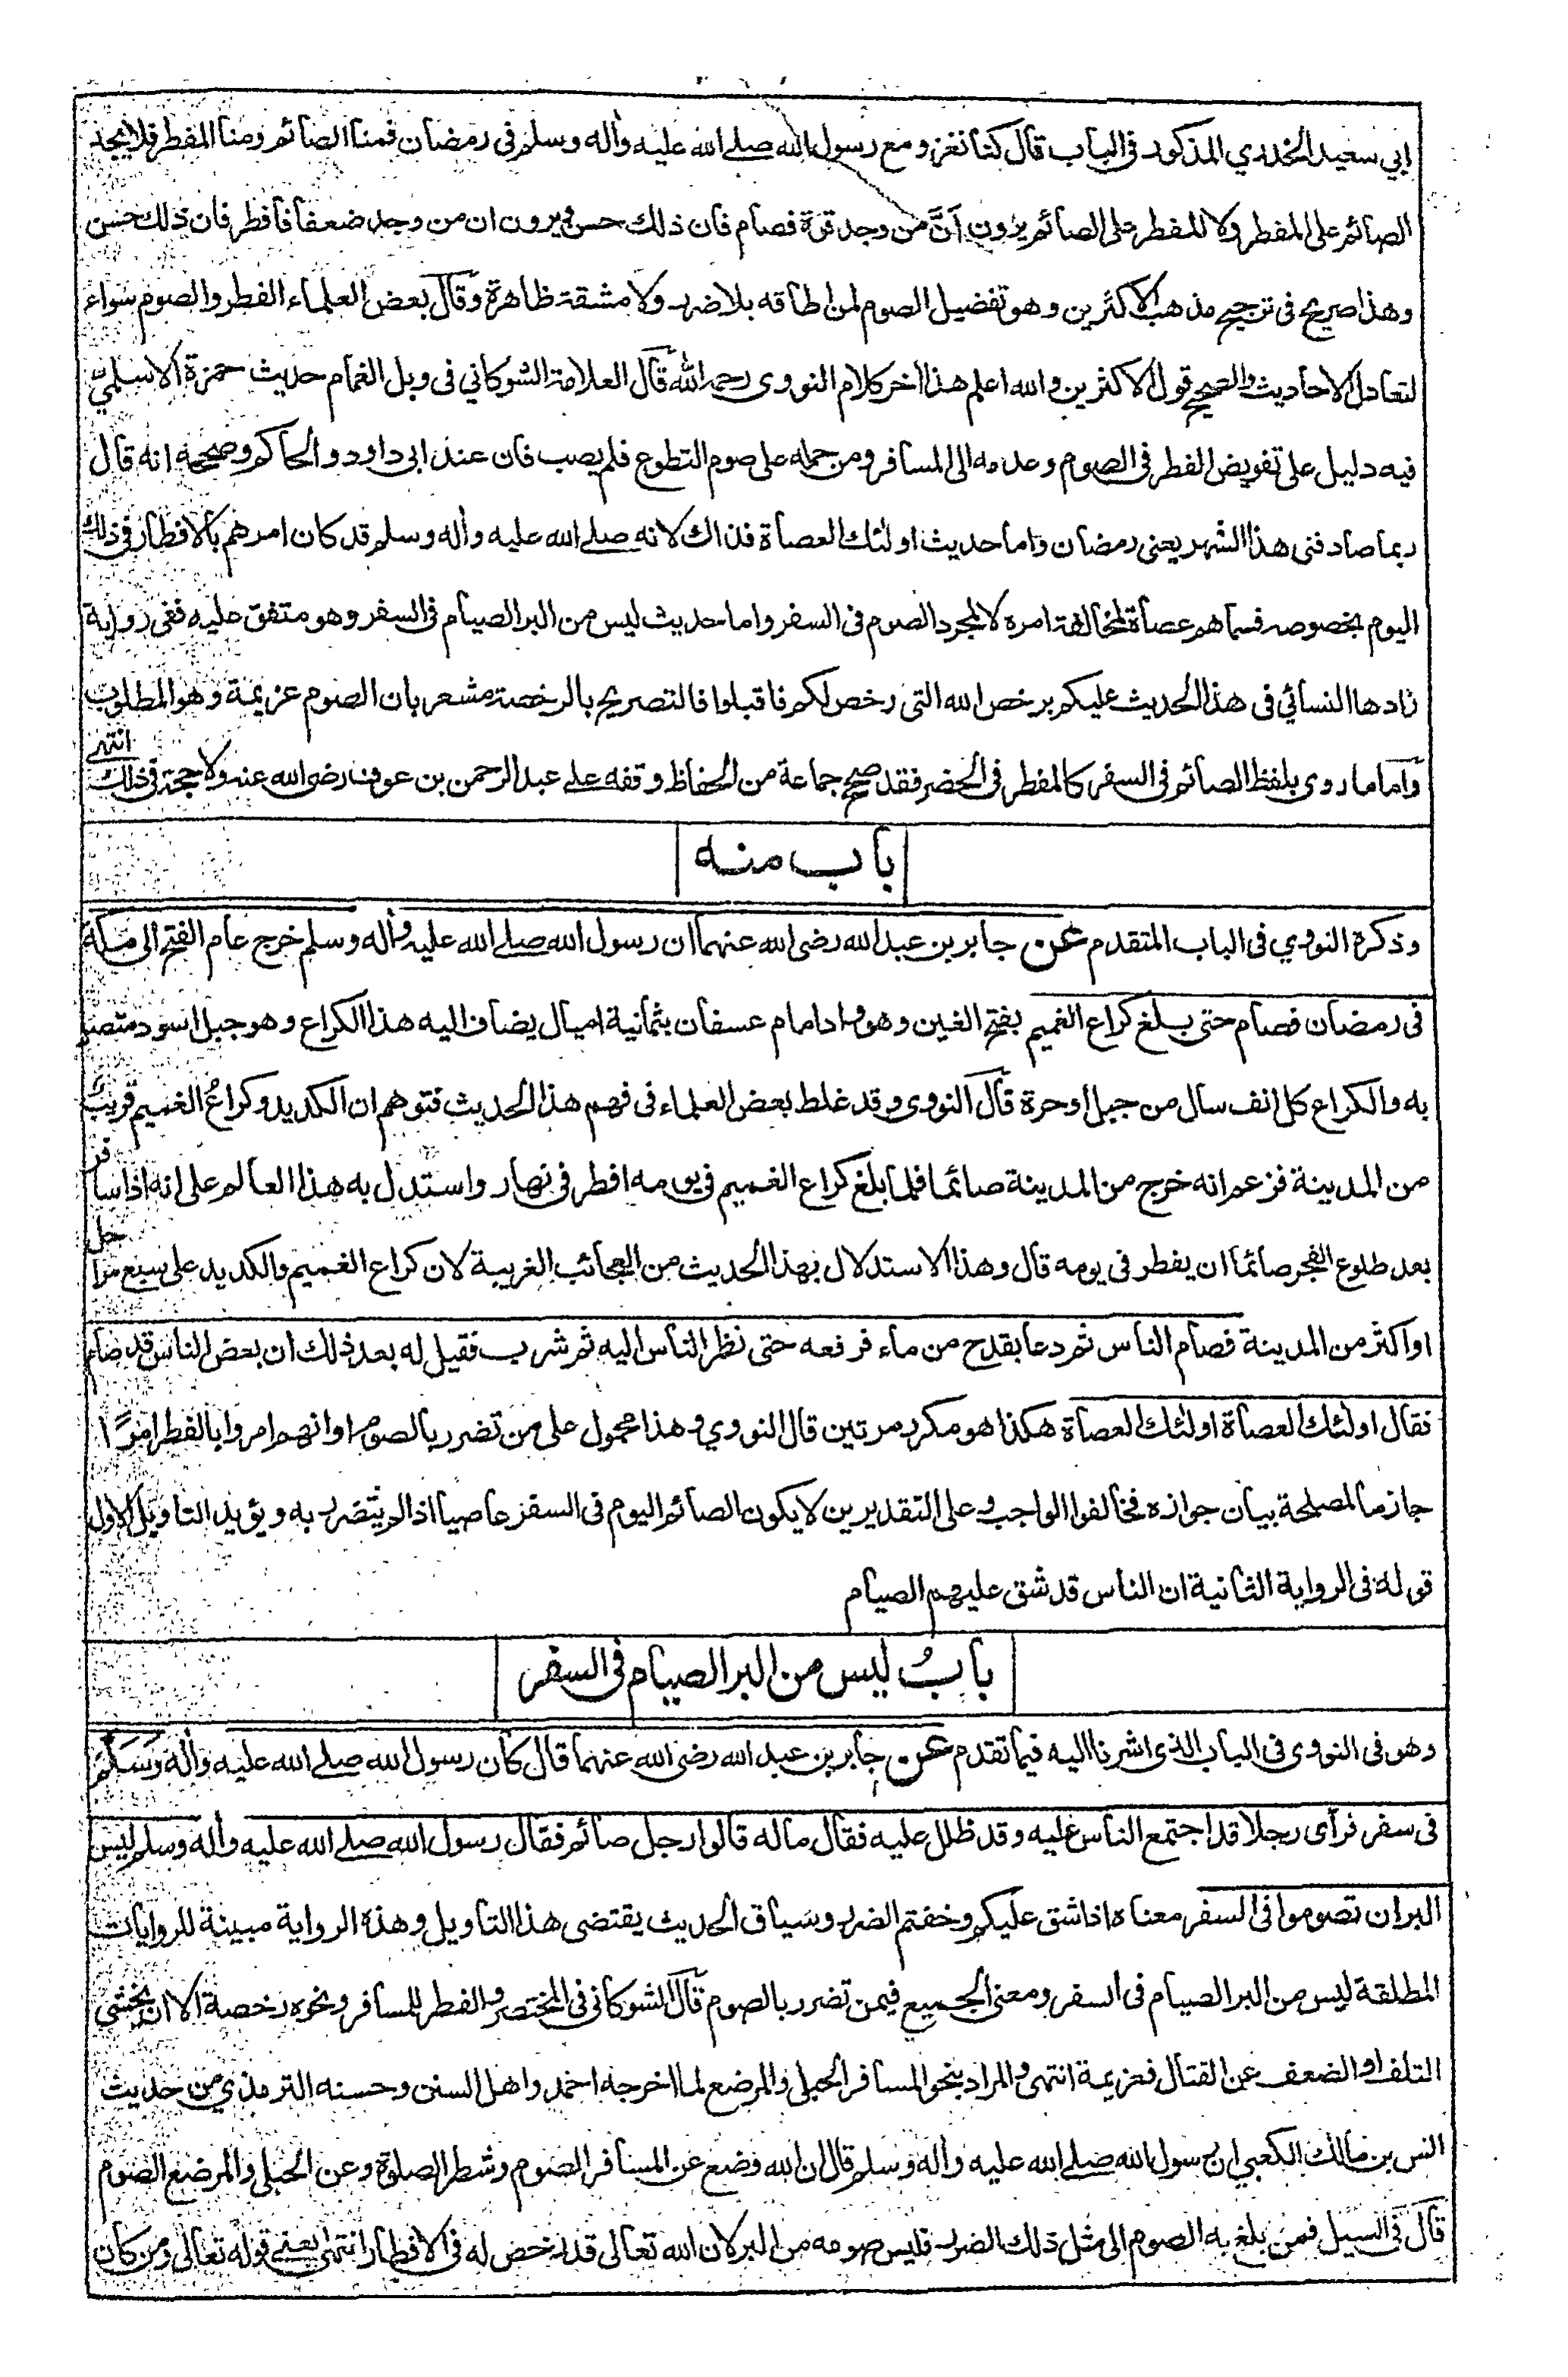 ابي سعيد الخدري المذكور في الباب قال كنا نغزو مع رسول الله صلے الله عليه وأله وسلم في رمضان فمنا الصائم ومنا المفطر فلا يجد
الصائم على المفطر ولا للمفطر على الصائم يرون أنَّ من وجد قوة فصام فان ذلك حسن ويرون ان من وجد ضعفا فافطر فان ذلك حسن
وهذا صريح في ترجيح مذهب الاكثرين وهو تفضيل الصوم لمن اطاقه بلا ضرر ولا مشقة ظاهرة وقال بعض العلماء الفطر والصوم سواء
لتعادل الاحاديث والصحيح قول الاكثرين والله اعلم هذا اخر كلام النووي رحمه الله قال العلامة الشوكاني في وبل الغمام حديث حمزة الاسلمي
فيه دليل على تفويض الفطر في الصوم وعدمه الى المسافر ومن حمله على صوم التطوع فلم يصب فان عند ابي داود والحاكم وصححه انه قال
ربما صادفني هذا الشهر يعني رمضان واما حديث اولئك العصاة فذاك لانه صلے الله عليه وأله وسلم قد كان امرهم بالافطار في ذلك
اليوم بخصوصه فسماهم عصاة لمخالفة امره لا لمجرد الصوم في السفر واما حديث ليس من البر الصيام في السفر وهو متفق عليه ففي رواية
زادها النسائي في هذا الحديث عليكم برخص الله التي رخص لكم فاقبلوا فالتصريح بالرخصة مشعر بان الصوم عزيمة وهو المطلوب
واما ما روي بلفظ الصائم في السفر كالمفطر في الحضر فقد صحح جماعة من الحفاظ وقفه علے عبد الرحمن بن عوف رضي الله عنه ولا حجة في ذلك انتهے
باب منه
وذكره النووي في الباب المتقدم عن جابر بن عبد الله رضي الله عنهما ان رسول الله صلے الله عليه وأله وسلم خرج عام الفتح الى مكة
في رمضان فصام حتى بلغ كراع الغميم بفتح الغين وهو واد امام عسفان بثمانية اميال يضاف اليه هذا الكراع وهو جبل اسود متصل
به والكراع كل انف سال من جبل او حرة قال النووي وقد غلط بعض العلماء في فهم هذا الحديث فتوهم ان الكديد وكراعُ الغميم قريب
من المدينة فزعم انه خرج من المدينة صائما فلما بلغ كراع الغميم في يومه افطر في نهار واستدل به هذا العالم على انه اذا سافر
بعد طلوع الفجر صائما ان يفطر في يومه قال وهذا الاستدلال بهذا الحديث من العجائب الغريبة لان كراع الغميم والكديد على سبع مراحل
او اكثر من المدينة فصام الناس ثم دعا بقدح من ماء فرفعه حتى نظر الناس اليه ثم شرب فقيل له بعد ذلك ان بعض الناس قد صام
فقال اولئك العصاة اولئك العصاة هكذا هو مكرر مرتين قال النووي وهذا محمول على من تضرر بالصوم او انهم امروا بالفطر امرًا
جازما لمصلحة بيان جوازه فخالفوا الواجب وعلى التقديرين لا يكون الصائم اليوم في السفر عاصيا اذا لم يتضرر به ويؤيد التاويل الاول
قوله في الرواية الثانية ان الناس قد شق عليهم الصيام
بابُ ليس من البر الصيام في السفر
وهو في النووي في الباب الذي اشرنا اليه فيما تقدم عن جابر بن عبد الله رضي الله عنهما قال كان رسول الله صلے الله عليه وأله وسلم
في سفر فرأى رجلا قد اجتمع الناس عليه وقد ظلل عليه فقال ماله قالوا رجل صائم فقال رسول الله صلے الله عليه وأله وسلم ليس
البر ان تصوموا في السفر معناه اذا شق عليكم وخفتم الضرر وسياق الحديث يقتضي هذا التاويل وهذه الرواية مبينة للروايات
المطلقة ليس من البر الصيام في السفر ومعنى الجميع فيمن تضرر بالصوم قال الشوكاني في المختصر والفطر للمسافر ونحوه رخصة الا ان يخشي
التلف او الضعف عن القتال فعزيمة انتهى والمراد بنحو المسافر الحبلى والمرضع لما اخرجه احمد واهل السنن وحسنه الترمذي من حديث
انس بن مالك الكعبي ان رسول الله صلے الله عليه وأله وسلم قال ان الله وضع عن المسافر الصوم وشطر الصلوة وعن الحبلى والمرضع الصوم
قال في السيل فمن بلغ به الصوم الى مثل ذلك الضرر فليس صومه من البر لان الله تعالى قد رخص له في الافطار انتهى يعني قوله تعالى ومن كان